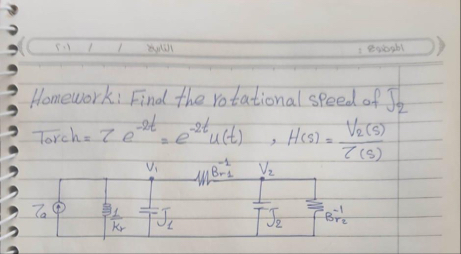 Homework: Find the rotational speed of J2
Torch = τ e^-2t = e^-2t u(t) , H(s) = V2(s) / τ(s)
V1 Br1^-1 V2
τa 1/kr J1 J2 Br2^-1